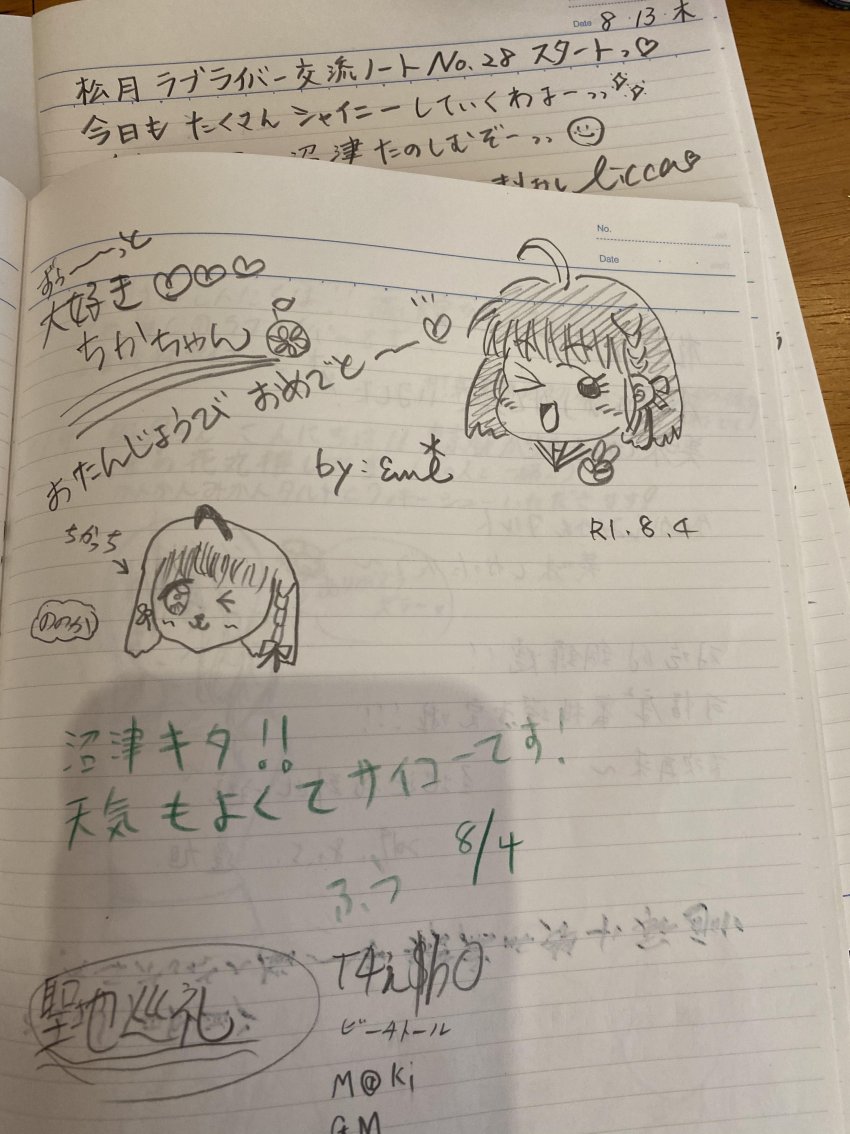 Date 8・13・木
松月 ラブライバー交流ノート No.28 スタートっ♡
今日も たくさん シャイニーしていくわよーっっ✨
沼津 たのしむぞーっっ☺
licca
No.
Date
ずぅ〜〜っと
大好き♡♡♡
ちかちゃん
おたんじょうび おめでと〜♡
by: Emi*
R1.8.4
ちかっち
ののか
沼津キタ!!
天気もよくてサイコーです!
8/4
ふっ
聖地巡礼
ビータトール
M@Ki
GM